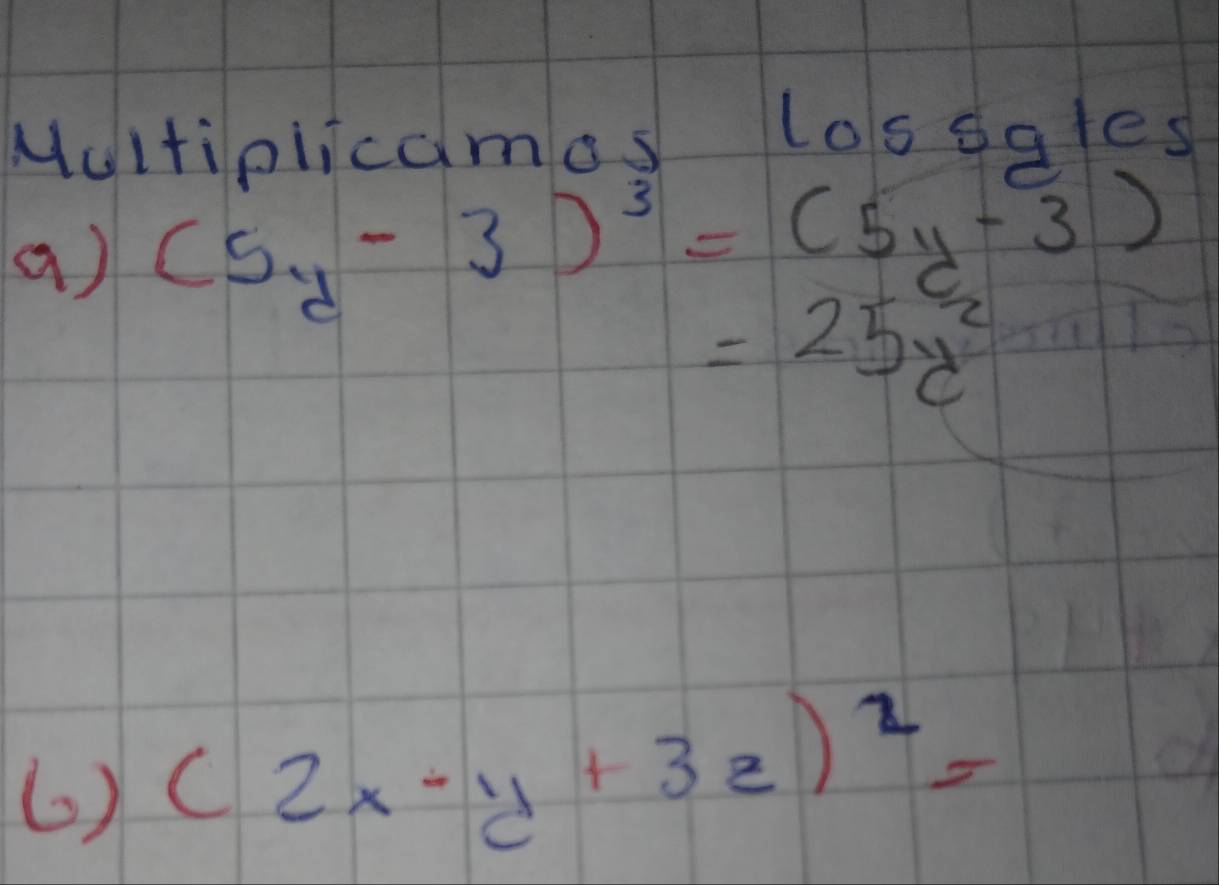 Multiplicamos los sgtes
a) (5y - 3)³ = (5y - 3)
= 25y²
b) (2x - y + 3z)² =